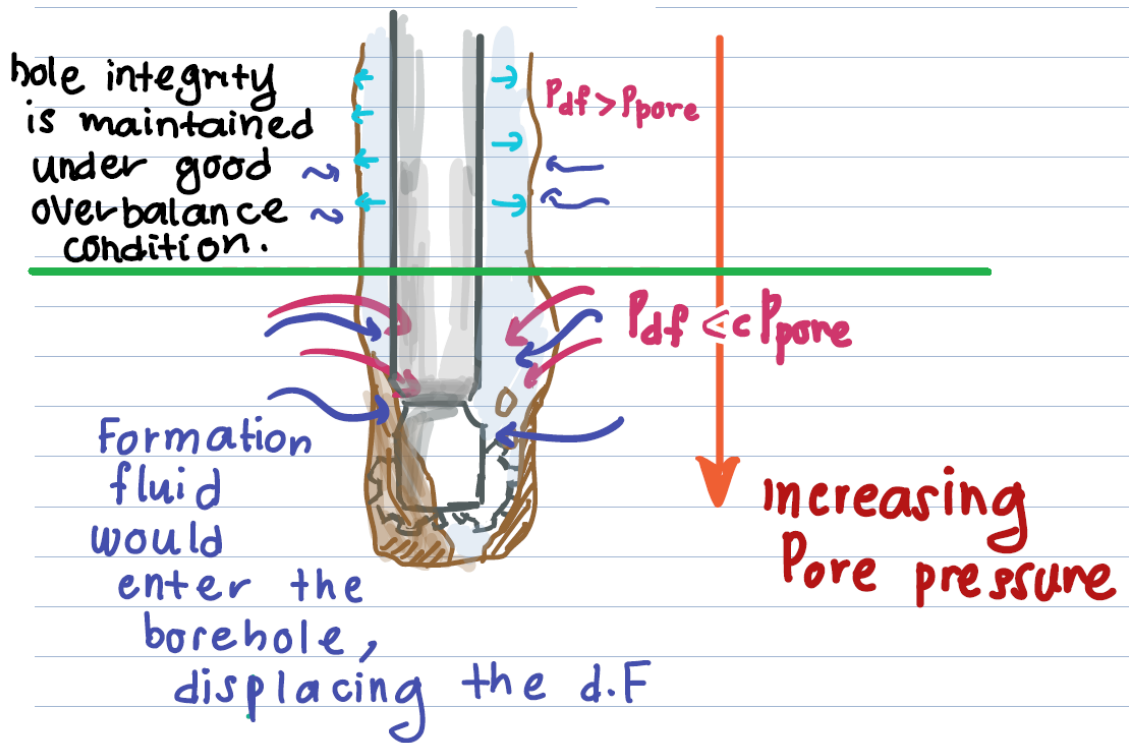 hole integrity
is maintained
under good
overbalance
condition.
Pdf > Ppore
Pdf << Ppore
Formation
fluid
would
enter the
borehole,
displacing the d.F
increasing
Pore pressure